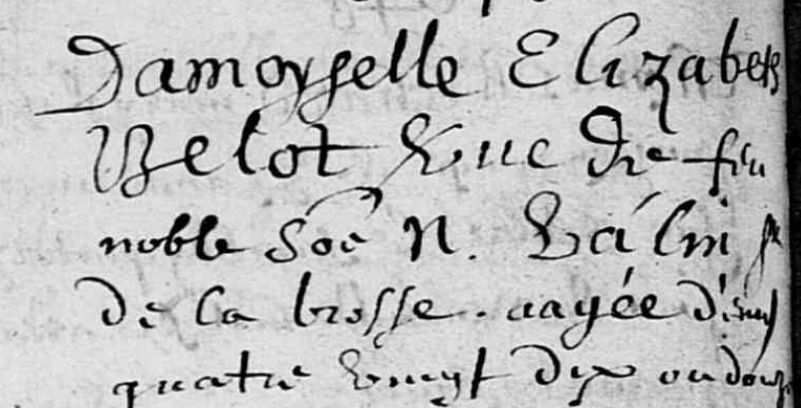 Damoyselle Elizabeth
Belot vue de feu
noble hoe N. Valin
de la brosse. aagée d'env
quatre vingt dix ou douze